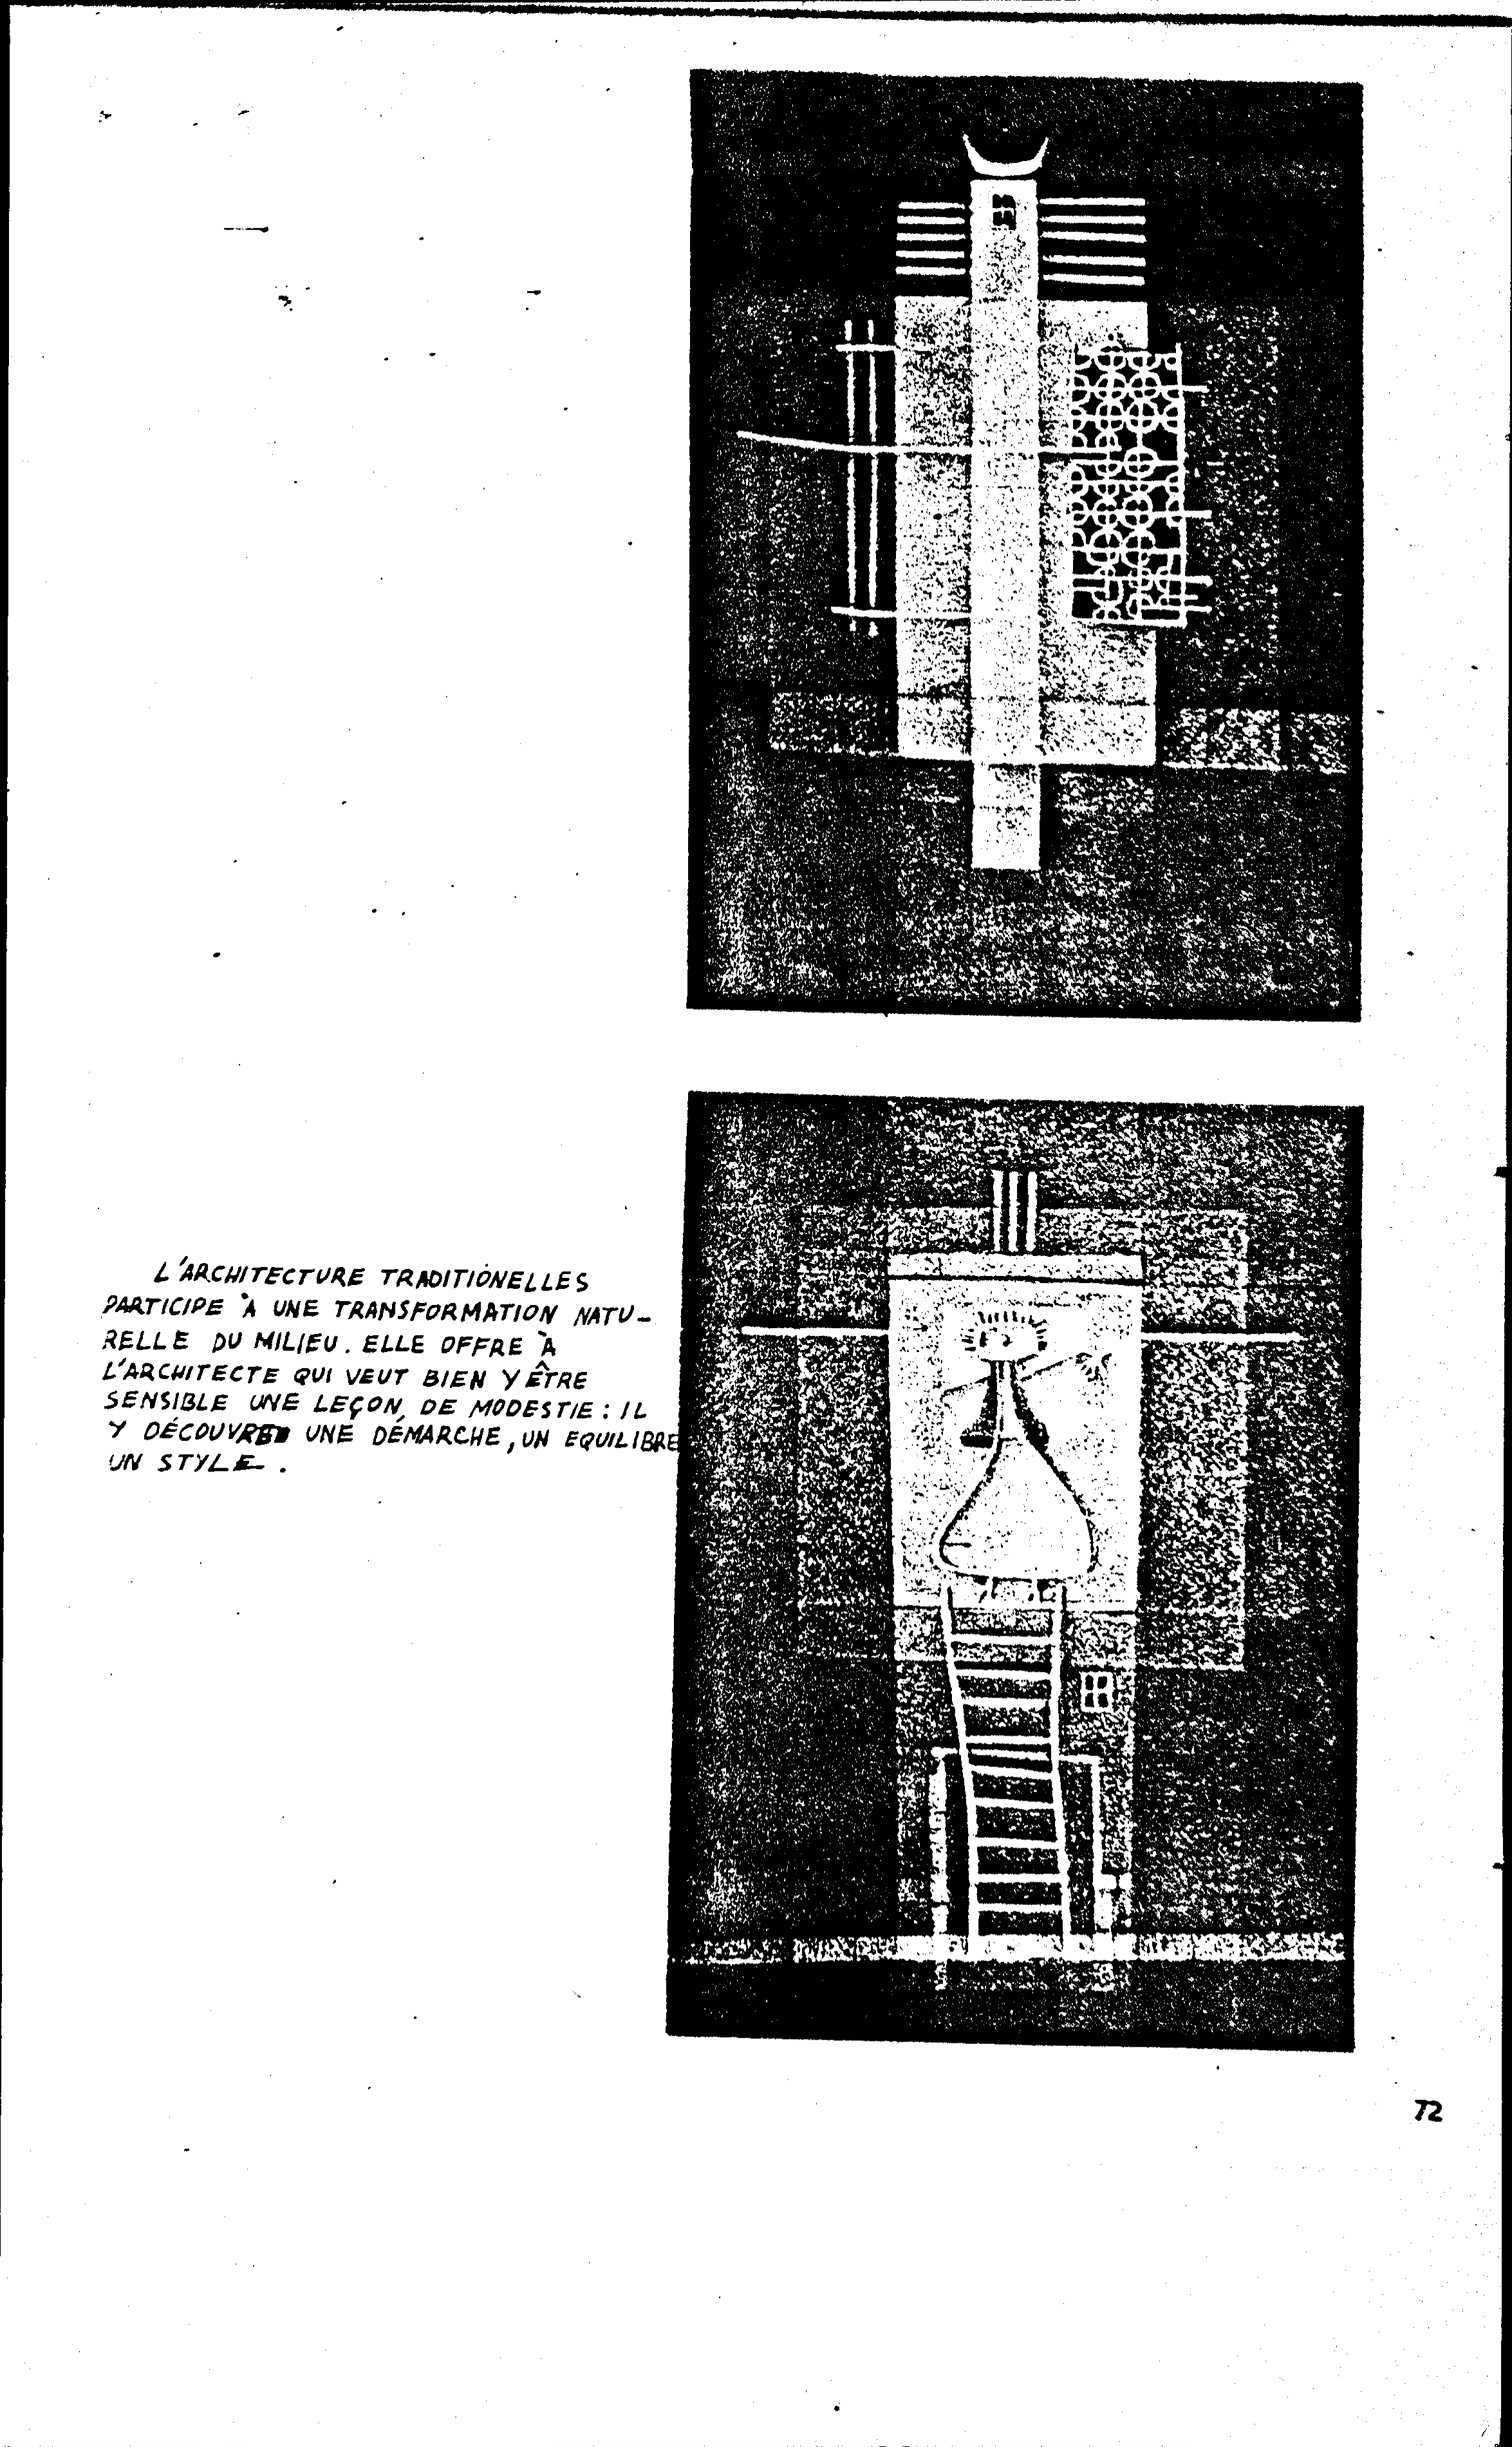 L'ARCHITECTURE TRADITIONELLES
PARTICIPE À UNE TRANSFORMATION NATU-
RELLE DU MILIEU. ELLE OFFRE À
L'ARCHITECTE QUI VEUT BIEN Y ÊTRE
SENSIBLE UNE LEÇON, DE MODESTIE : IL
Y DÉCOUVRE UNE DÉMARCHE, UN EQUILIBRE
UN STYLE.
72